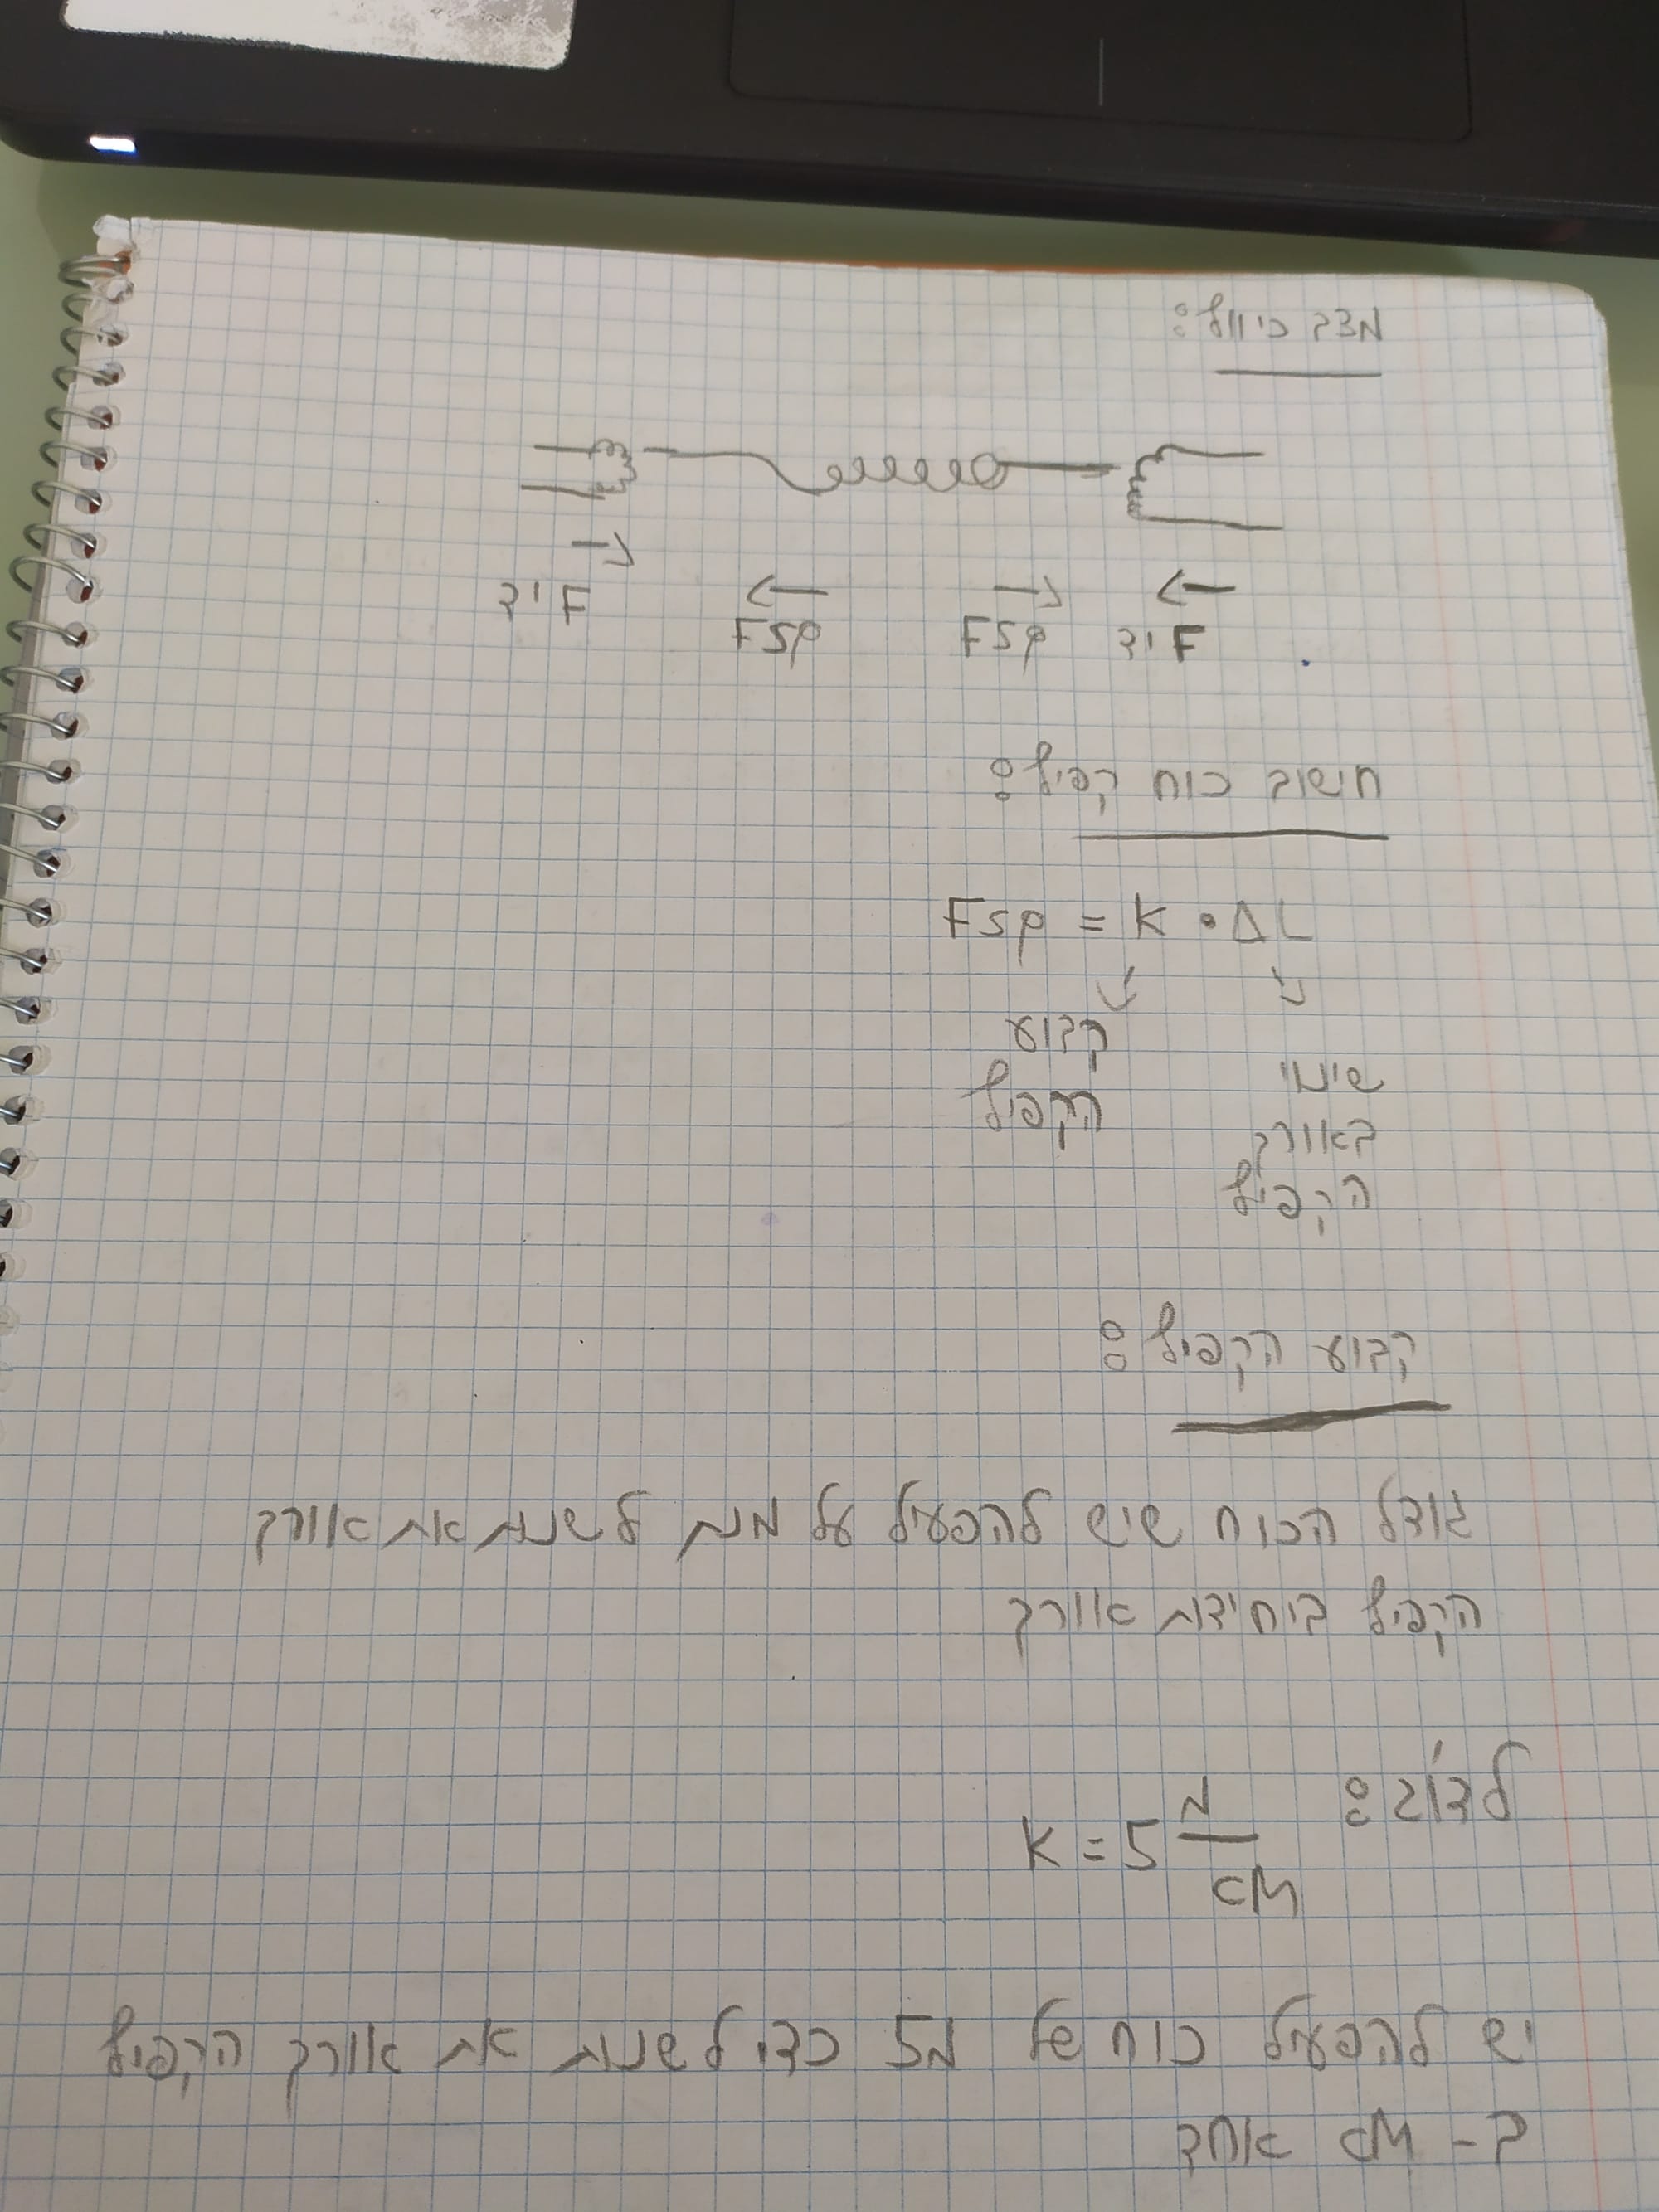 מצב כיווץ:
F יד
Fsp Fsp F יד
חישוב כוח קפיץ:
Fsp = K • ΔL
קבוע
הקפיץ
שינוי
באורך
הקפיץ
קבוע הקפיץ:
גודל הכוח שיש להפעיל על מנת לשנות את אורך
הקפיץ ביחידת אורך
לדוג':
K = 5 N/cM
יש להפעיל כוח של 5N כדי לשנות את אורך הקפיץ
ב- cM אחד